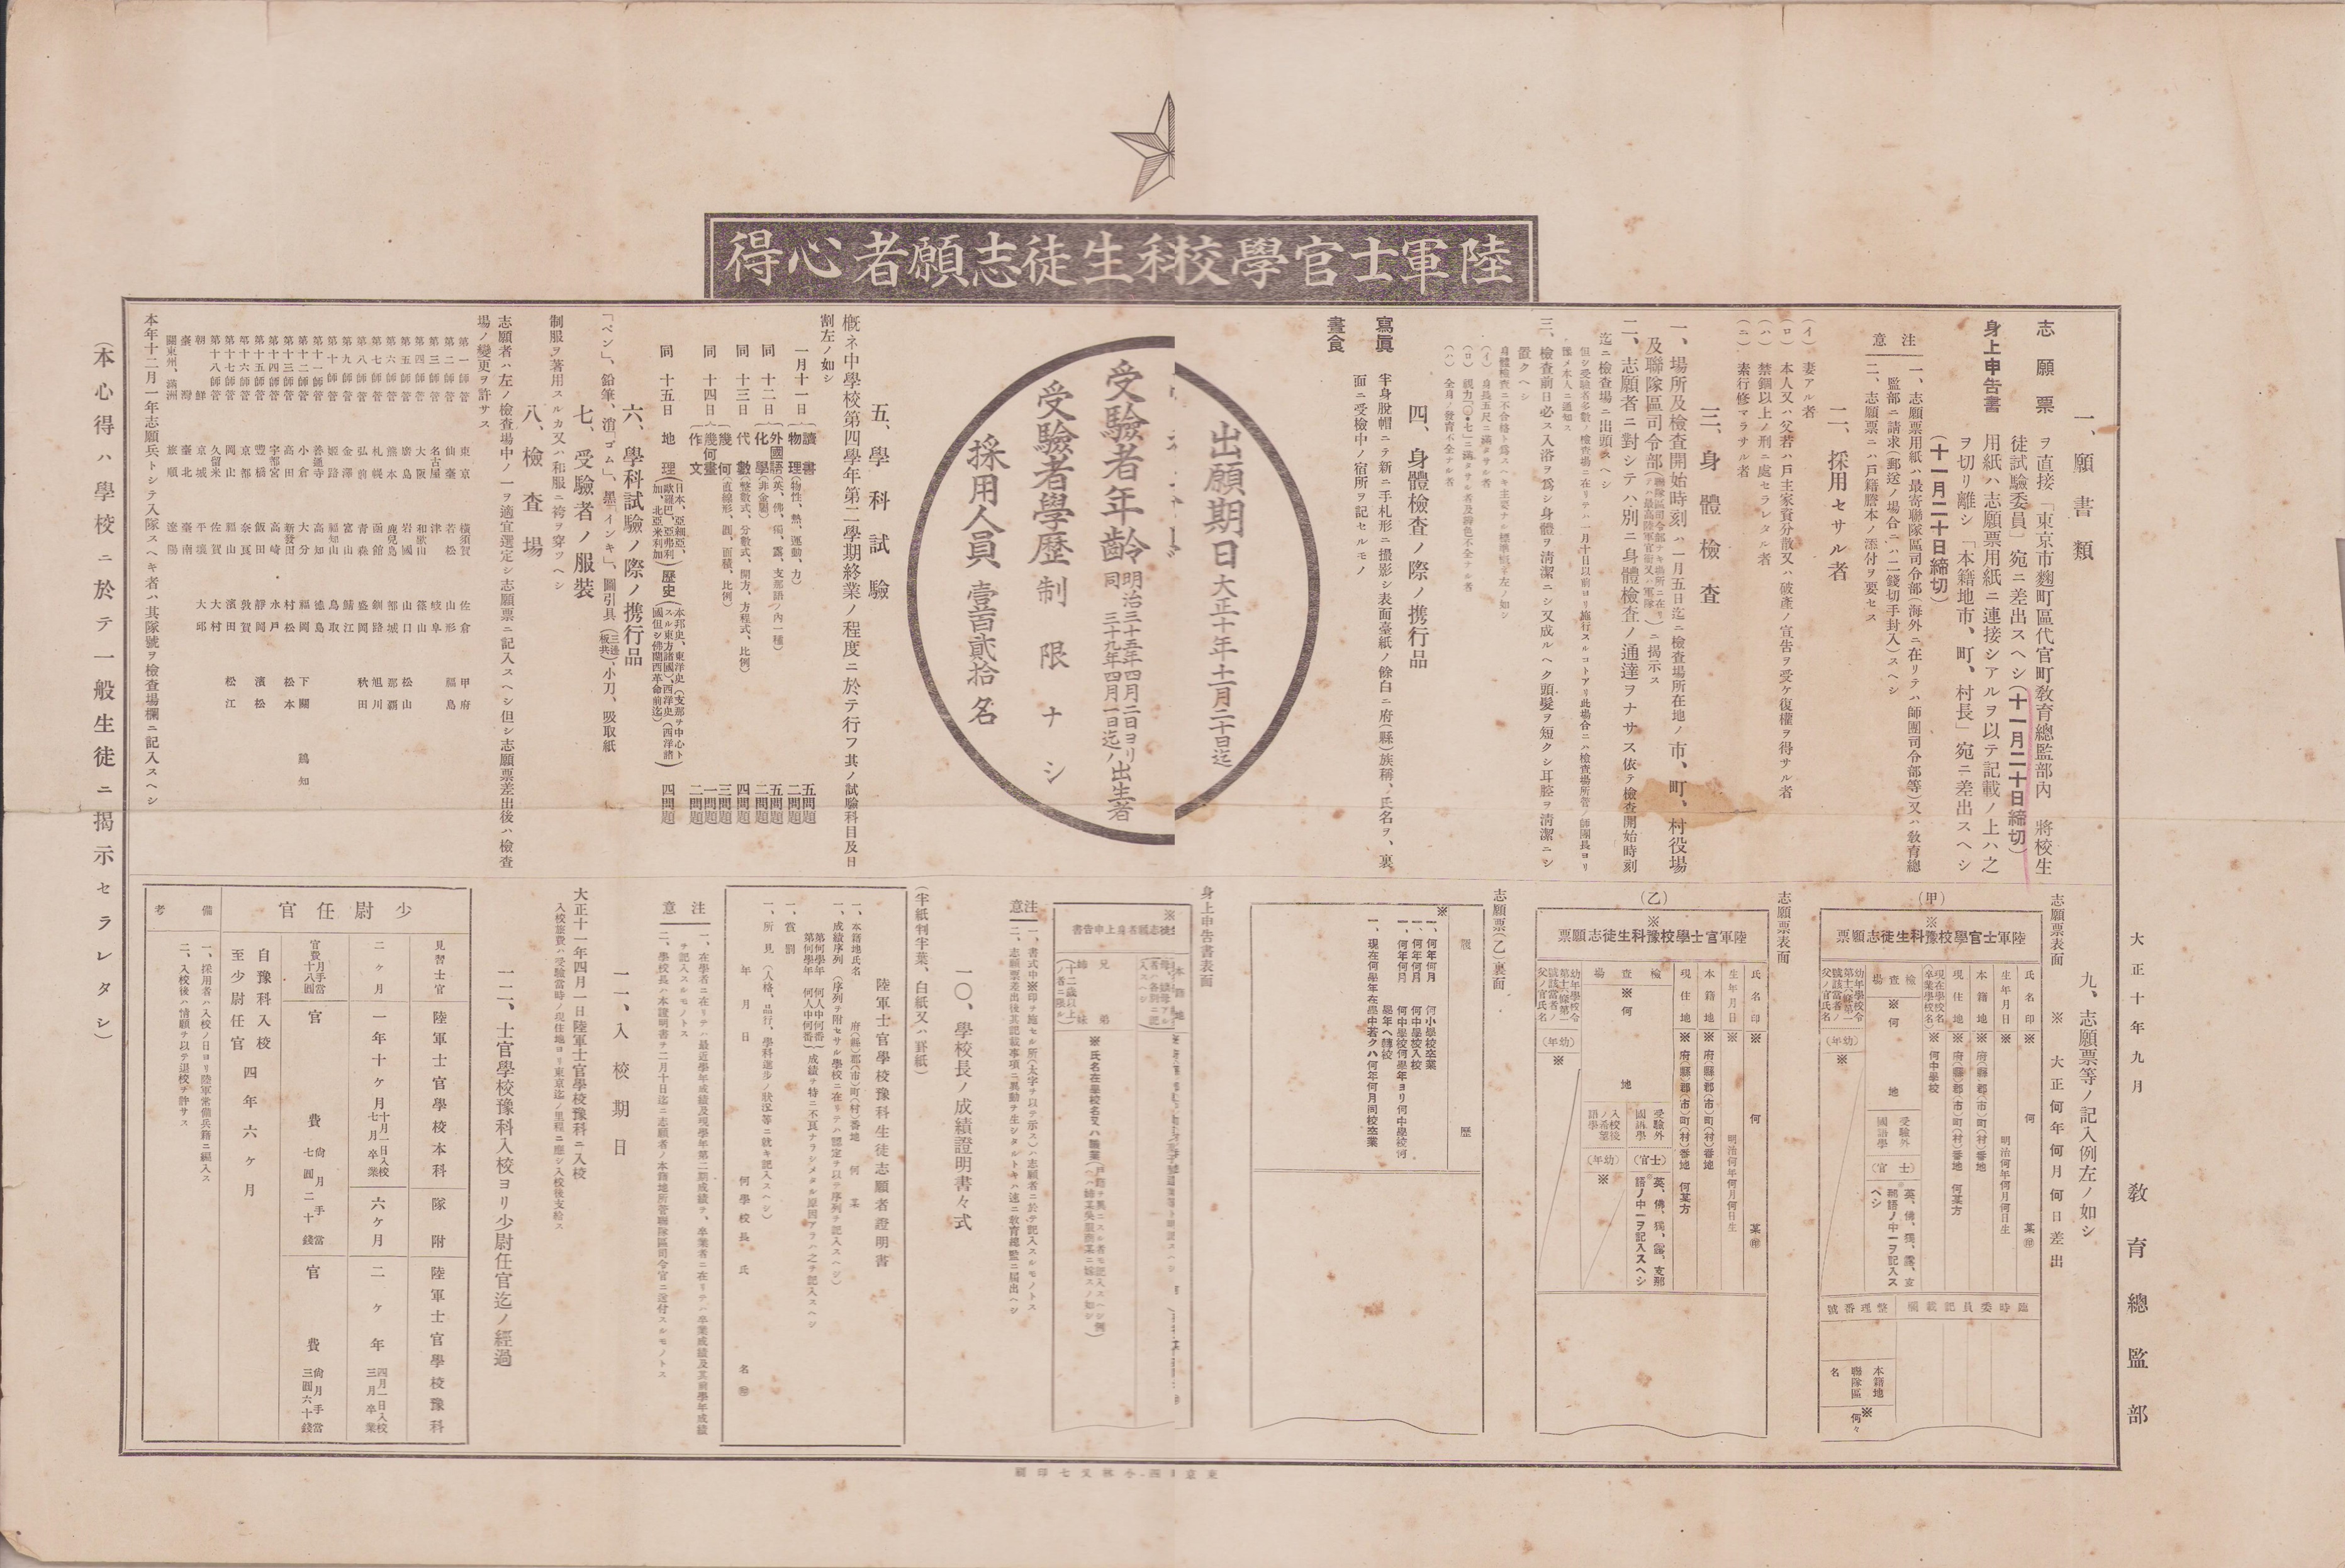 陸軍士官學校豫科生徒志願者心得
出願期日 大正十年十一月二十日迄
受驗者年齡 明治三十五年四月二日ヨリ同三十九年四月一日迄ノ出生者
受驗者學歷 制限ナシ
採用人員 壹百貳拾名
一、願書類
志願票 ヲ直接「東京市麴町區代官町敎育總監部內 將校生
徒試驗委員」宛ニ差出スヘシ(十一月二十日締切)
身上申告書 用紙ハ志願票用紙ニ連接シアルヲ以テ記載ノ上ハ之
ヲ切リ離シ「本籍地市、町、村長」宛ニ差出スヘシ
(十一月二十日締切)
注意
一、志願票用紙ハ最寄聯隊區司令部(海外ニ在リテハ師團司令部等)又ハ敎育總
監部ニ請求(郵送ノ場合ニハ二錢切手封入)スヘシ
二、志願票ニハ戶籍謄本ノ添付ヲ要セス
二、採用セサル者
(イ) 妻アル者
(ロ) 本人又ハ父若ハ戶主家資分散又ハ破產ノ宣告ヲ受ケ復權ヲ得サル者
(ハ) 禁錮以上ノ刑ニ處セラレタル者
(ニ) 素行修マラサル者
三、身體檢査
一、場所及檢査開始時刻ハ一月五日迄ニ檢査場所在地ノ市、町、村役場
及聯隊區司令部(聯隊區司令部ナキ場所ニ在リテハ最高陸軍官衙又ハ軍隊)ニ揭示ス
二、志願者ニ對シテハ別ニ身體檢査ノ通達ヲナサス依テ檢査開始時刻
迄ニ檢査場ニ出頭スヘシ
但シ受驗者多數ノ檢査場ニ在リテハ一月十日以前ヨリ施行スルコトアリ此場合ニハ檢査場所管ノ師團長ヨリ
豫メ本人ニ通知ス
三、檢査前日必ス入浴ヲ爲シ身體ヲ淸潔ニシ又成ルヘク頭髮ヲ短クシ耳腔ヲ淸潔ニシ
置クヘシ
身體檢査ニ不合格ト爲スヘキ主要ナル標準概ネ左ノ如シ
(イ) 身長五尺ニ滿タサル者
(ロ) 視力「〇・七」ニ滿タサル者及辨色不全ナル者
(ハ) 全身ノ發育不全ナル者
四、身體檢査ノ際ノ携行品
寫眞 半身脫帽ニテ新ニ手札形ニ撮影シ表面臺紙ノ餘白ニ府(縣)族稱、氏名ヲ、裏
面ニ受檢中ノ宿所ヲ記セルモノ
晝食
五、學科試驗
槪ネ中學校第四學年第二學期終業ノ程度ニ於テ行フ其ノ試驗科目及日
割左ノ如シ
一月十一日 讀書 五問題
物理(物性、熱、運動、力) 二問題
同 十二日 外國語(英、佛、獨、露、支那語ノ內一種) 五問題
化學(非金屬) 二問題
同 十三日 代數(整數式、分數式、開方、方程式、比例) 四問題
同 十四日 幾何(直線形、圓、面積、比例) 三問題
幾何畫 一問題
作文 二問題
同 十五日 地理(日本、亞細亞、歐羅巴、亞弗利加、北亞米利加) 歷史(本邦史、東洋史(支那ヲ中心トスル東方諸國)、西洋史(西洋諸國但シ佛蘭西革命前迄)) 四問題
六、學科試驗ノ際ノ携行品
「ペン」、鉛筆、消「ゴム」、黑「インキ」、圖引具(三稜板共)、小刀、吸取紙
七、受驗者ノ服裝
制服ヲ著用スルカ又ハ和服ニ袴ヲ穿ツヘシ
八、檢査場
志願者ハ左ノ檢査場中ノ一ヲ適宜選定シ志願票ニ記入スヘシ但シ志願票差出後ハ檢査
場ノ變更ヲ許サス
第一師管 東京 橫須賀 佐倉 甲府
第二師管 仙臺 若松 山形 福島
第三師管 名古屋 津 岐阜
第四師管 大阪 和歌山 篠山
第五師管 廣島 岩國 山口 松山
第六師管 熊本 鹿兒島 都城 那覇
第七師管 札幌 函館 釧路 旭川
第八師管 弘前 靑森 盛岡 秋田
第九師管 金澤 富山 鯖江
第十師管 姬路 福知山 鳥取
第十一師管 善通寺 高知 德島
第十二師管 小倉 大分 福岡 下關 鷄知
第十三師管 高田 新發田 村松 松本
第十四師管 宇都宮 高崎 水戶
第十五師管 豐橋 飯田 靜岡 濱松
第十六師管 京都 奈良 敦賀
第十七師管 岡山 福山 濱田 松江
第十八師管 久留米 佐賀 大村
朝鮮 京城 平壤 大邱
臺灣 臺北 臺南
關東州、滿洲 旅順 遼陽
本年十二月一年志願兵トシテ入隊スヘキ者ハ其隊號ヲ檢査場欄ニ記入スヘシ
(本心得ハ學校ニ於テ一般生徒ニ揭示セラレタシ)
大正十年九月 敎育總監部
九、志願票等ノ記入例左ノ如シ
志願票表面 ※大正何年何月何日差出
(甲)
※陸軍士官學校豫科生徒志願票
氏名印 ※ 何某㊞
生年月日 ※ 明治何年何月何日生
本籍地 ※ 府(縣)郡(市)町(村)番地
現住地 ※ 府(縣)郡(市)町(村)番地 何某方
現在學校名(卒業學校名) ※ 何中學校
檢査場 ※ 何地
受驗外國語學 (士官) 英、佛、獨、露、支那語ノ中一ヲ記入スヘシ
幼年學校令第十六條第一號該當者ノ父ノ官氏名 (幼年) ※
臨時委員記載欄
整理番號
本籍地聯隊區名 ※ 何々
志願票表面
(乙)
※陸軍官士學校豫科生徒志願票
氏名印 ※ 何某㊞
生年月日 ※ 明治何年何月何日生
本籍地 ※ 府(縣)郡(市)町(村)番地
現住地 ※ 府(縣)郡(市)町(村)番地 何某方
檢査場 ※ 何地
受驗外國語學 (士官) 英、佛、獨、露、支那語ノ中一ヲ記入スヘシ
入校後ノ希望語學 (幼年) ※
幼年學校令第十六條第一號該當者ノ父ノ官氏名 (幼年) ※
志願票(乙)裏面
履歷
※
一、何年何月 何小學校卒業
一、何年何月 何中學校入校
一、何年何月 何中學校何學年ヨリ何中學校何學年ヘ轉校
一、現在何學年在學中若クハ何年何月同校卒業
身上申告書表面
本籍地
兄弟姉妹(十二歲以上ノ者ニ限ル)
注意
一、書式中※印ヲ施セル所(太字ヲ以テ示ス)ハ志願者ニ於テ記入スルモノトス
二、志願票差出後其記載事項ニ異動ヲ生シタルトキハ速ニ敎育總監ニ屆出ヘシ
一〇、學校長ノ成績證明書々式
(半紙判半葉、白紙又ハ罫紙)
陸軍士官學校豫科生徒志願者證明書
一、本籍地氏名 府(縣)郡(市)町(村)番地 何某
一、成績序列(序列ヲ附セサル學校ニ在リテハ認定ヲ以テ序列ヲ記入スヘシ)
第何學年 何人中何番
第何學年 何人中何番
成績ヲ特ニ不良ナラシメタル原因アラハ之ヲ記入スヘシ
一、賞罰
一、所見(人格、品行、學科進步ノ狀況等ニ就キ記入スヘシ)
年月日 何學校長氏名㊞
注意
一、在學者ニ在リテハ最近學年成績及現學年第二期成績ヲ、卒業者ニ在リテハ卒業成績及其前學年成績
ヲ記入スルモノトス
二、學校長ハ本證明書ヲ二月十日迄ニ志願者ノ本籍地所管聯隊區司令官ニ送付スルモノトス
一一、入校期日
大正十一年四月一日陸軍士官學校豫科ニ入校
入校旅費ハ受驗當時ノ現住地ヨリ東京迄ノ里程ニ應シ入校後支給ス
一二、士官學校豫科入校ヨリ少尉任官迄ノ經過
陸軍士官學校豫科 二ヶ年 四月一日入校三月卒業 官費 尙月手當三圓六十錢
隊附 六ヶ月
陸軍士官學校本科 一年十ヶ月 十月一日入校七月卒業 官費 尙月手當七圓二十錢
見習士官 二ヶ月 官費 月手當十八圓
少尉任官
自豫科入校至少尉任官 四年六ヶ月
備考
一、採用者ハ入校ノ日ヨリ陸軍常備兵籍ニ編入ス
二、入校後ハ情願ヲ以テ退校ヲ許サス